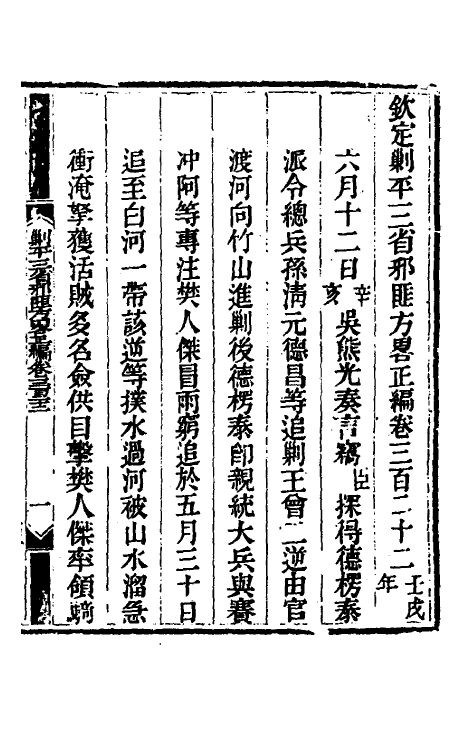 欽定剿平三省邪匪方畧正編卷三百二十二 壬戌年
六月十二日 辛亥 吳熊光奏言竊臣 探得德楞泰
派令總兵孫清元德昌等追剿王曾二逆由官
渡河向竹山進剿後德楞泰卽親統大兵與賽
冲阿等專注樊人傑冒雨窮追於五月三十日
追至白河一帶該逆等撲水過河被山水溜急
衝淹拏獲活賊多名僉供目擊樊人傑率領
剿平三省邪匪方畧正編卷三百二十二
一